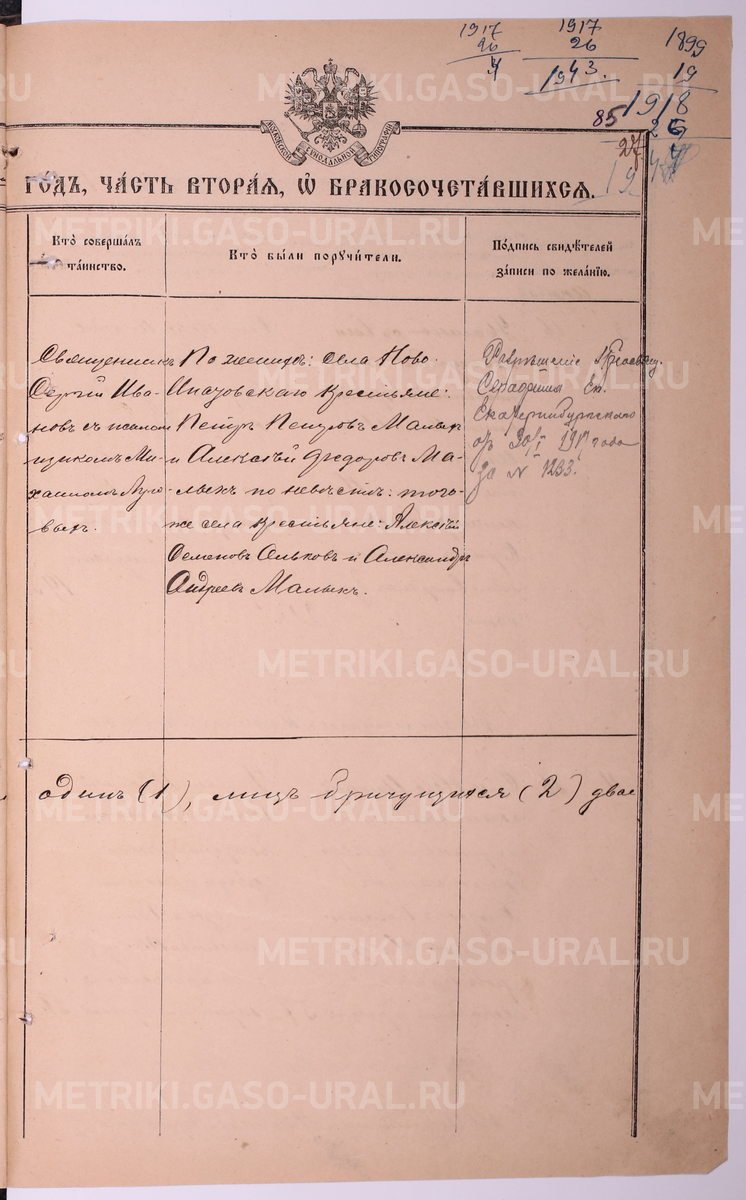 1917
26
4
1917
26
1943.
1899
19
1918
26
85
27
МОСКОВСКОЙ СѴНОДАЛЬНОЙ ТИПОГРАФІИ
ГОДЪ, ЧАСТЬ ВТОРАѦ, Ѡ БРАКОСОЧЕТАВШИХСѦ.
Кто совершалъ
таинство.
Кто были поручители.
Подпись свидѣтелей
записи по желанію.
Священникъ
Сергій Ива-
новъ съ псалом
щикомъ Ми-
хаиломъ Луго
выхъ.
По женихѣ: села Ново-
Ипатовскаго крестьяне:
Петръ Петровъ Малыхъ
и Алексѣй Федоровъ Ма-
лыхъ по невѣстѣ: того-
же села крестьяне: Алексѣй
Семеновъ Ольковъ и Александръ
Андреевъ Малыхъ.
Разрѣшеніе
Серафима Еп.
Екатеринбургскаго
отъ 30/I 1917 года
за № 1233.
одинъ (1), лицъ (2) двое
METRIKI.GASO-URAL.RU